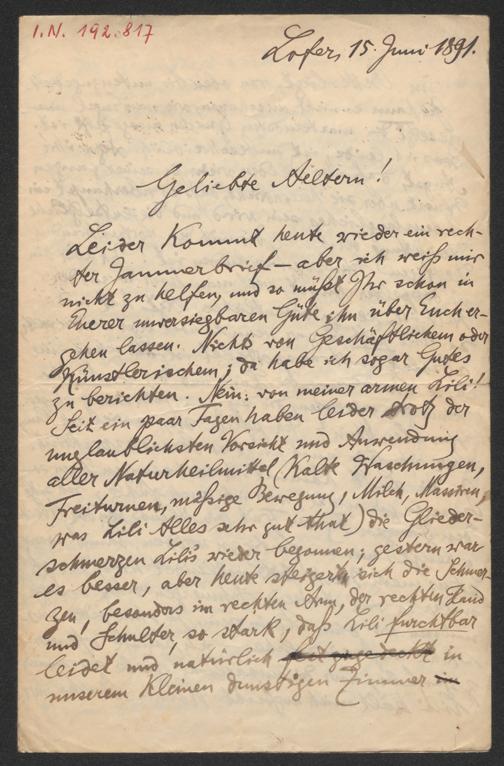 I.N. 192.817
Lofer, 15. Juni 1891.
Geliebte Aeltern!
Leider kommt heute wieder ein rech-
ter Jammerbrief – aber ich weiß mir
nicht zu helfen, und so müßt Ihr schon in
Eurer unversiegbaren Güte ihn über Euch er-
gehen lassen. Nichts von Geschäftlichem oder
Künstlerischem; da habe ich sogar Gutes
zu berichten. Nein: von meiner armen Lili!
Seit ein paar Tagen haben leider trotz der
unglaublichsten Vorsicht und Anwendung
aller Naturheilmittel (Kalte Waschungen,
Freiturnen, mäßige Bewegung, Milch, Massiren,
was Lili Alles sehr gut that) die Glieder-
schmerzen Lilis wieder begonnen; gestern war
es besser, aber heute steigern sich die Schmer-
zen, besonders im rechten Arm, der rechten Hand
und Schulter, so stark, daß Lili furchtbar
leidet und natürlich in
unserem kleinen dunstigen Zimmer im